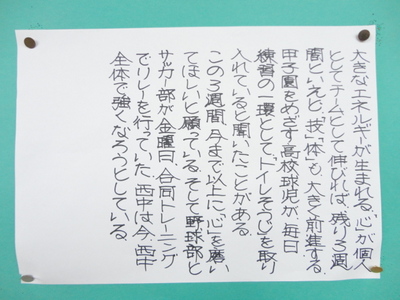 大きなエネルギーが生まれる。「心」が個人
としてチームとして伸びれば、残り3週
間といえど「技」「体」も大きく前進する。
甲子園をめざす高校球児が、毎日
練習の一環として「トイレそうじ」を取り
入れていると聞いたことがある。
この3週間、今まで以上に「心」を磨い
てほしいと願っている。そして野球部と
サッカー部が金曜日、合同トレーニング
でリレーを行っていた。西中は今、西中
全体で強くなろうとしている。